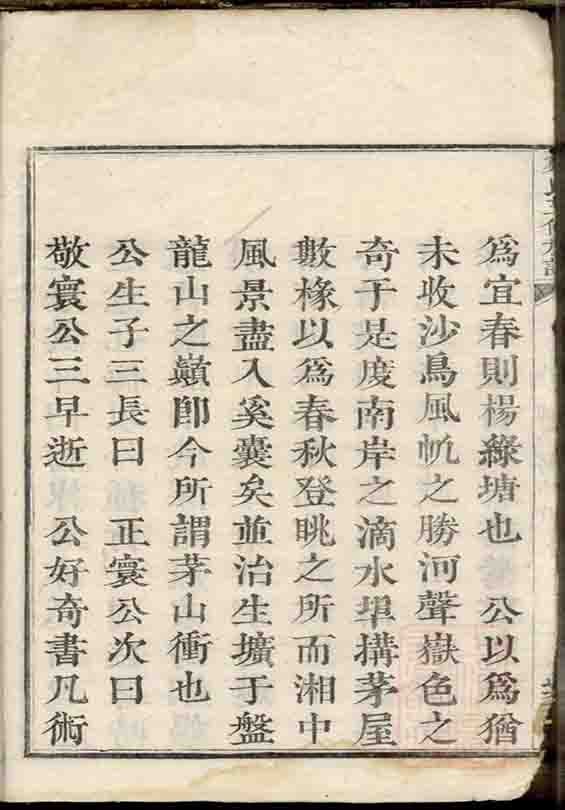 爲宜春則楊綠塘也　公以爲猶
未收沙鳥風帆之勝河聲嶽色之
奇于是度南岸之滴水埠搆茅屋
數椽以爲春秋登眺之所而湘中
風景盡入奚囊矣並治生壙于盤
龍山之巔卽今所謂茅山衝也
公生子三長曰　正寰公次曰
敬寰公三早逝　公好奇書凡術